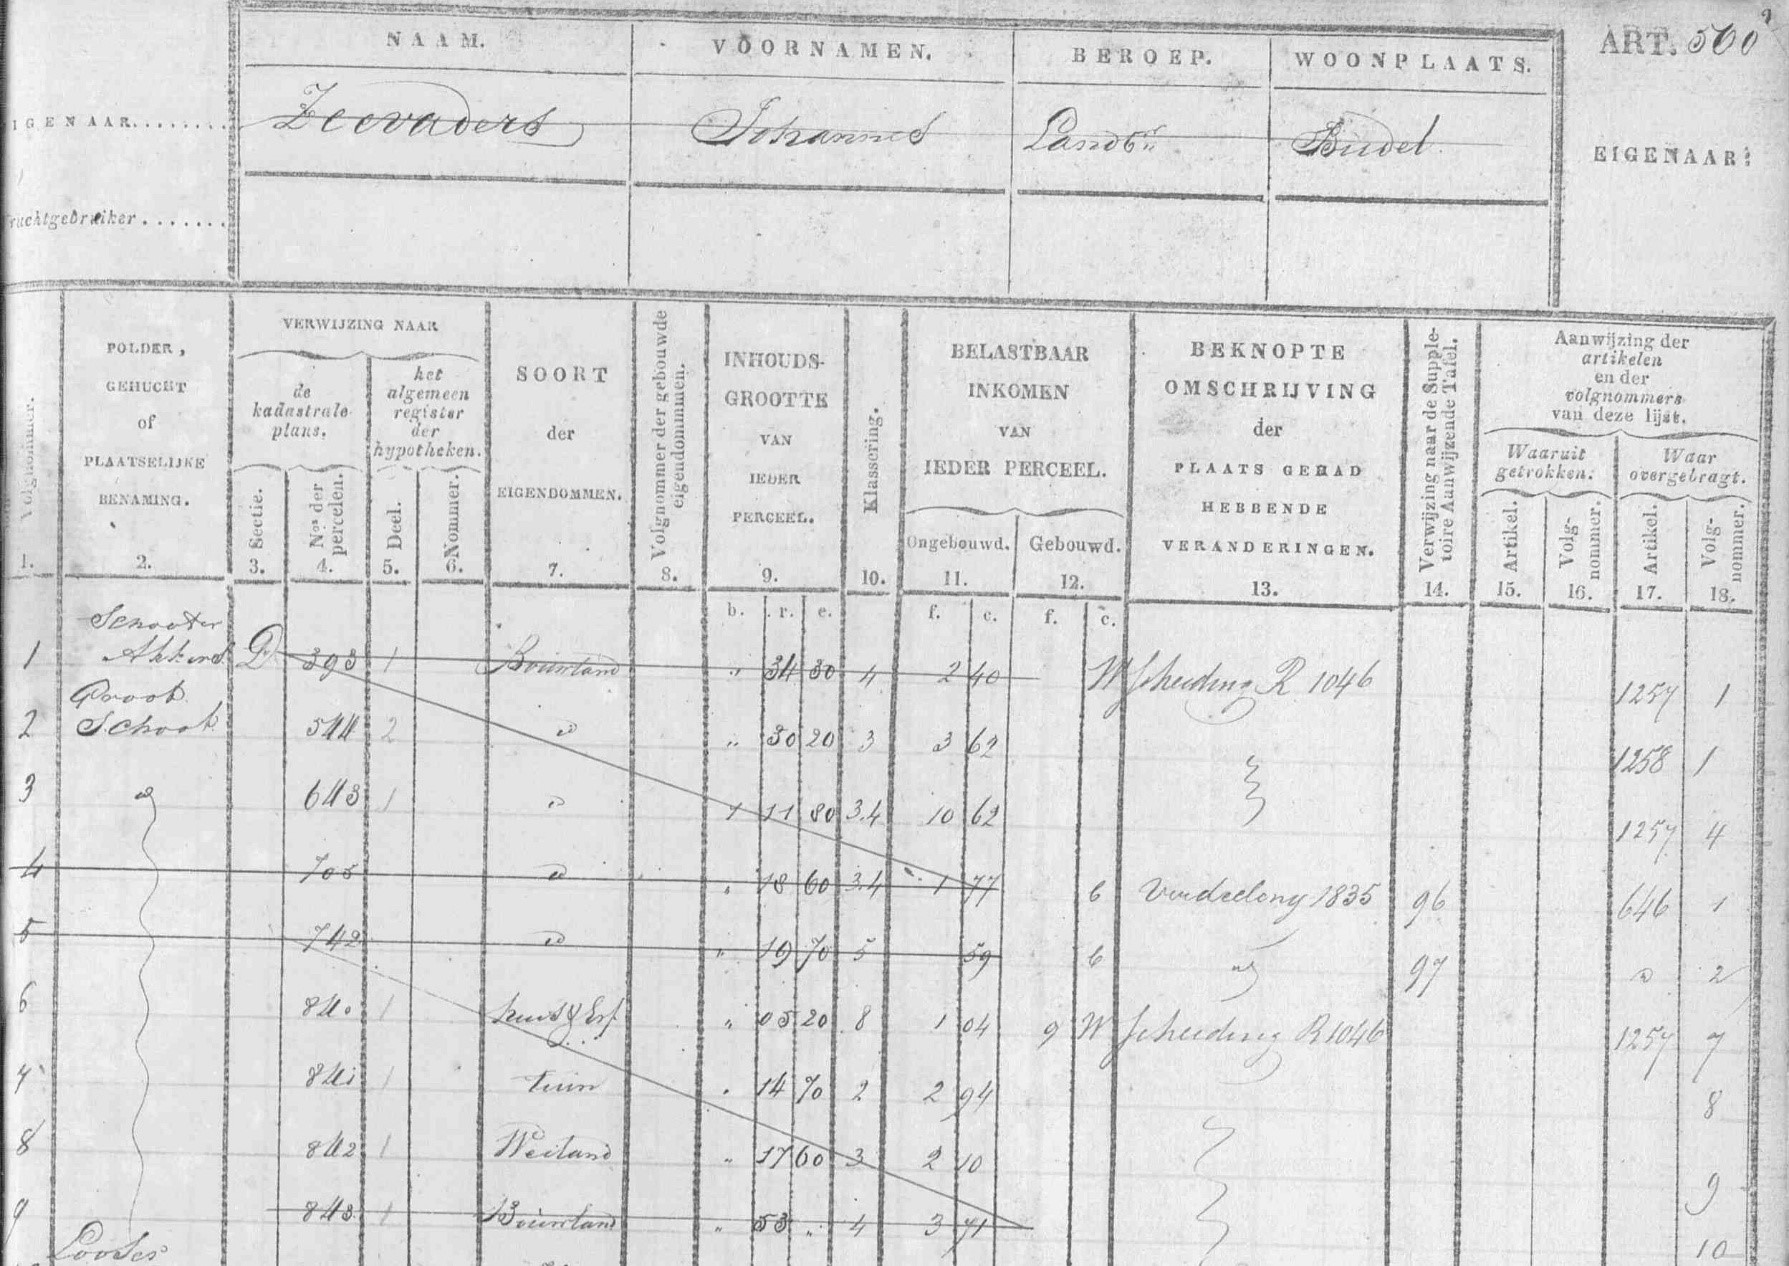 ART. 500
NAAM. VOORNAMEN. BEROEP. WOONPLAATS.
IGENAAR........ Zeevaders Johannes Landbr Budel EIGENAAR:
ruchtgebruiker.......
Volgnommer.
POLDER,
GEHUCHT
of
PLAATSELIJKE
BENAMING.
VERWIJZING NAAR
de
kadastrale
plans.
het
algemeen
register
der
hypotheken.
Sectie.
Nos der
percelen.
Deel.
Nommer.
SOORT
der
EIGENDOMMEN.
Volgnommer der gebouwde
eigendommen.
INHOUDS-
GROOTTE
VAN
IEDER
PERCEEL.
Klassering.
BELASTBAAR
INKOMEN
VAN
IEDER PERCEEL.
Ongebouwd. Gebouwd.
BEKNOPTE
OMSCHRIJVING
der
PLAATS GEHAD
HEBBENDE
VERANDERINGEN.
Verwijzing naar de Supple-
toire Aanwijzende Tafel.
Aanwijzing der
artikelen
en der
volgnommers
van deze lijst.
Waaruit
getrokken.
Waar
overgebragt.
Artikel.
Volg-
nommer.
Artikel.
Volg-
nommer.
1. 2. 3. 4. 5. 6. 7. 8. 9. 10. 11. 12. 13. 14. 15. 16. 17. 18.
b. r. e. f. c. f. c.
Schooter
1 Akkers D 393 1 Bouwland " 34 30 4 2 40 W Scheiding R 1046 1257 1
Groot
2 Schoot 544 2 " 30 20 3 3 62 1258 1
3 643 1 1 11 80 3.4 10 62 1257 4
4 705 " 18 60 3.4 1 77 6 Verdeeling 1835 96 646 1
5 742 " 19 70 5 59 6 97 2
6 840 1 huis & Erf " 05 20 8 1 04 9 W Scheiding R 1046 1257 7
7 841 1 tuin " 14 70 2 2 94 8
8 842 1 Weiland " 17 60 3 2 10 9
9 843 1 Bouwland " 53 " 4 3 71 10